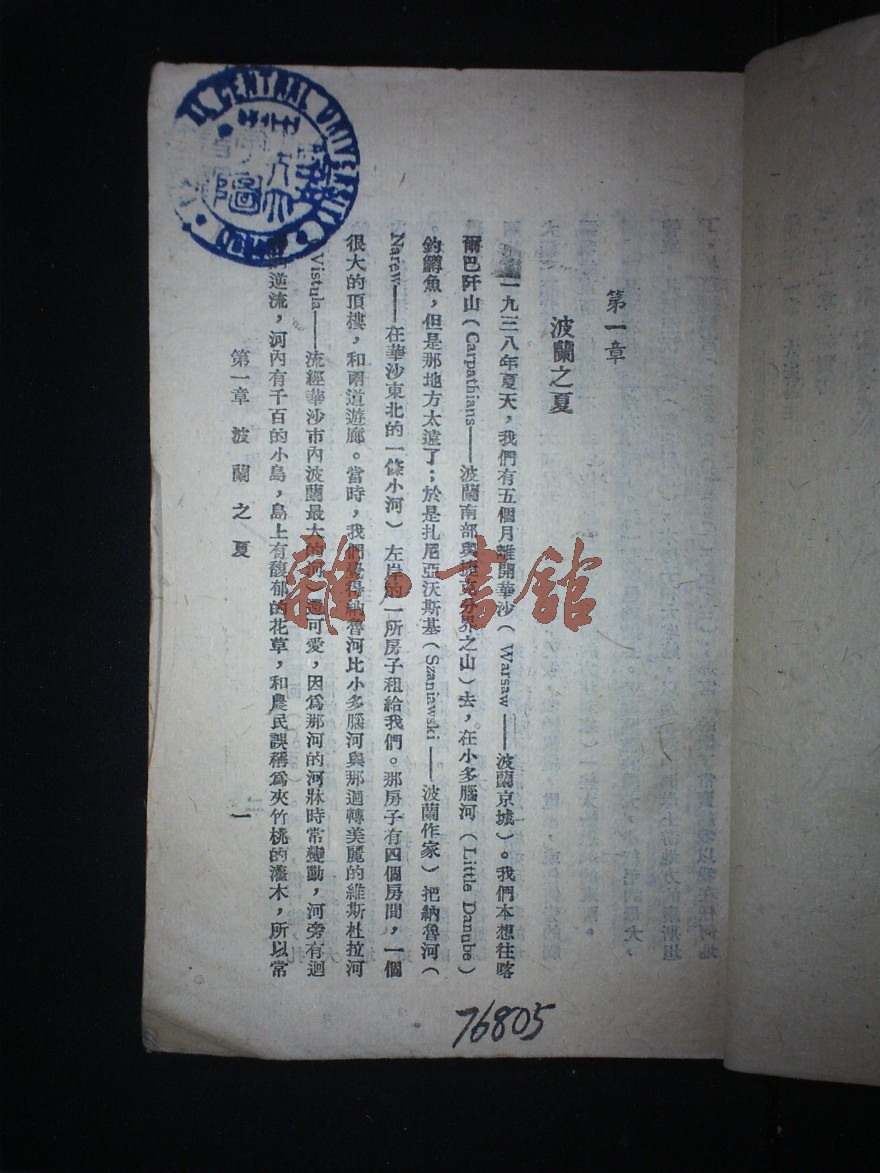 第一章
波蘭之夏
一九三八年夏天，我們有五個月離開華沙（Warsaw——波蘭京城）。我們本想往喀
爾巴阡山（Carpathians——波蘭南部與捷克分界之山）去，在小多腦河（Little Danube）
釣鱒魚，但是那地方太遠了；於是扎尼亞沃斯基（Szaniawski——波蘭作家）把納魯河（
Narew——在華沙東北的一條小河）左岸的一所房子租給我們。那房子有四個房間，一個
很大的頂樓，和兩道遊廊。當時，我們覺得納魯河比小多腦河與那迴轉美麗的維斯杜拉河
Vistula——流經華沙市內波蘭最大的河 還可愛，因為那河的河牀時常變動，河旁有迴
逆流，河內有千百的小島，島上有馥郁的花草，和農民誤稱為夾竹桃的灌木，所以常
第一章 波蘭之夏
一
CENTRAL UNIVERSITY
雜·書館
76805